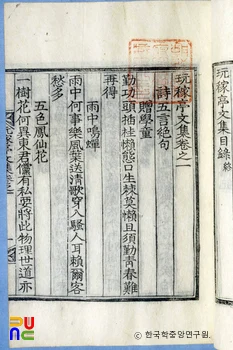 玩稼亭文集目錄 終
玩稼亭文集卷之一
詩 五言絶句
贈學童
勤功頭插桂懶態口生棘莫懶且須勤青春難
再得
雨中鳴蟬
雨中何事樂風葉送清歌穿入騷人耳賴爾客
愁多
五色鳳仙花
一樹花何異東君儻有私要將此物理世道亦
한국학중앙연구원